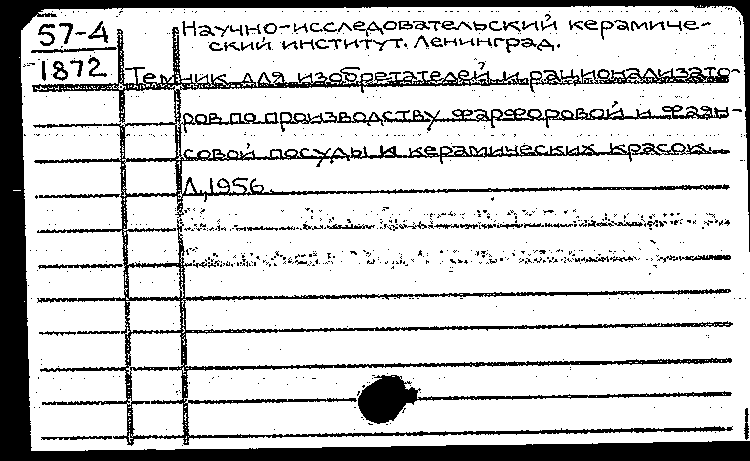 57-4
1872
Научно-исследовательский керамиче-
ский институт. Ленинград.
Темник для изобретателей и рационализато-
ров по производству фарфоровой и фаян-
совой посуды и керамических красок.
Л., 1956.